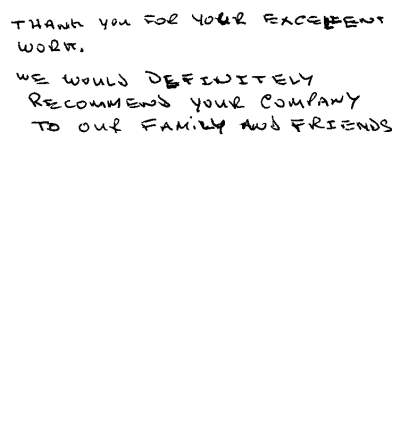 THANK YOU FOR YOUR EXCELLENT
WORK.
WE WOULD DEFINITELY
RECOMMEND YOUR COMPANY
TO OUR FAMILY AND FRIENDS